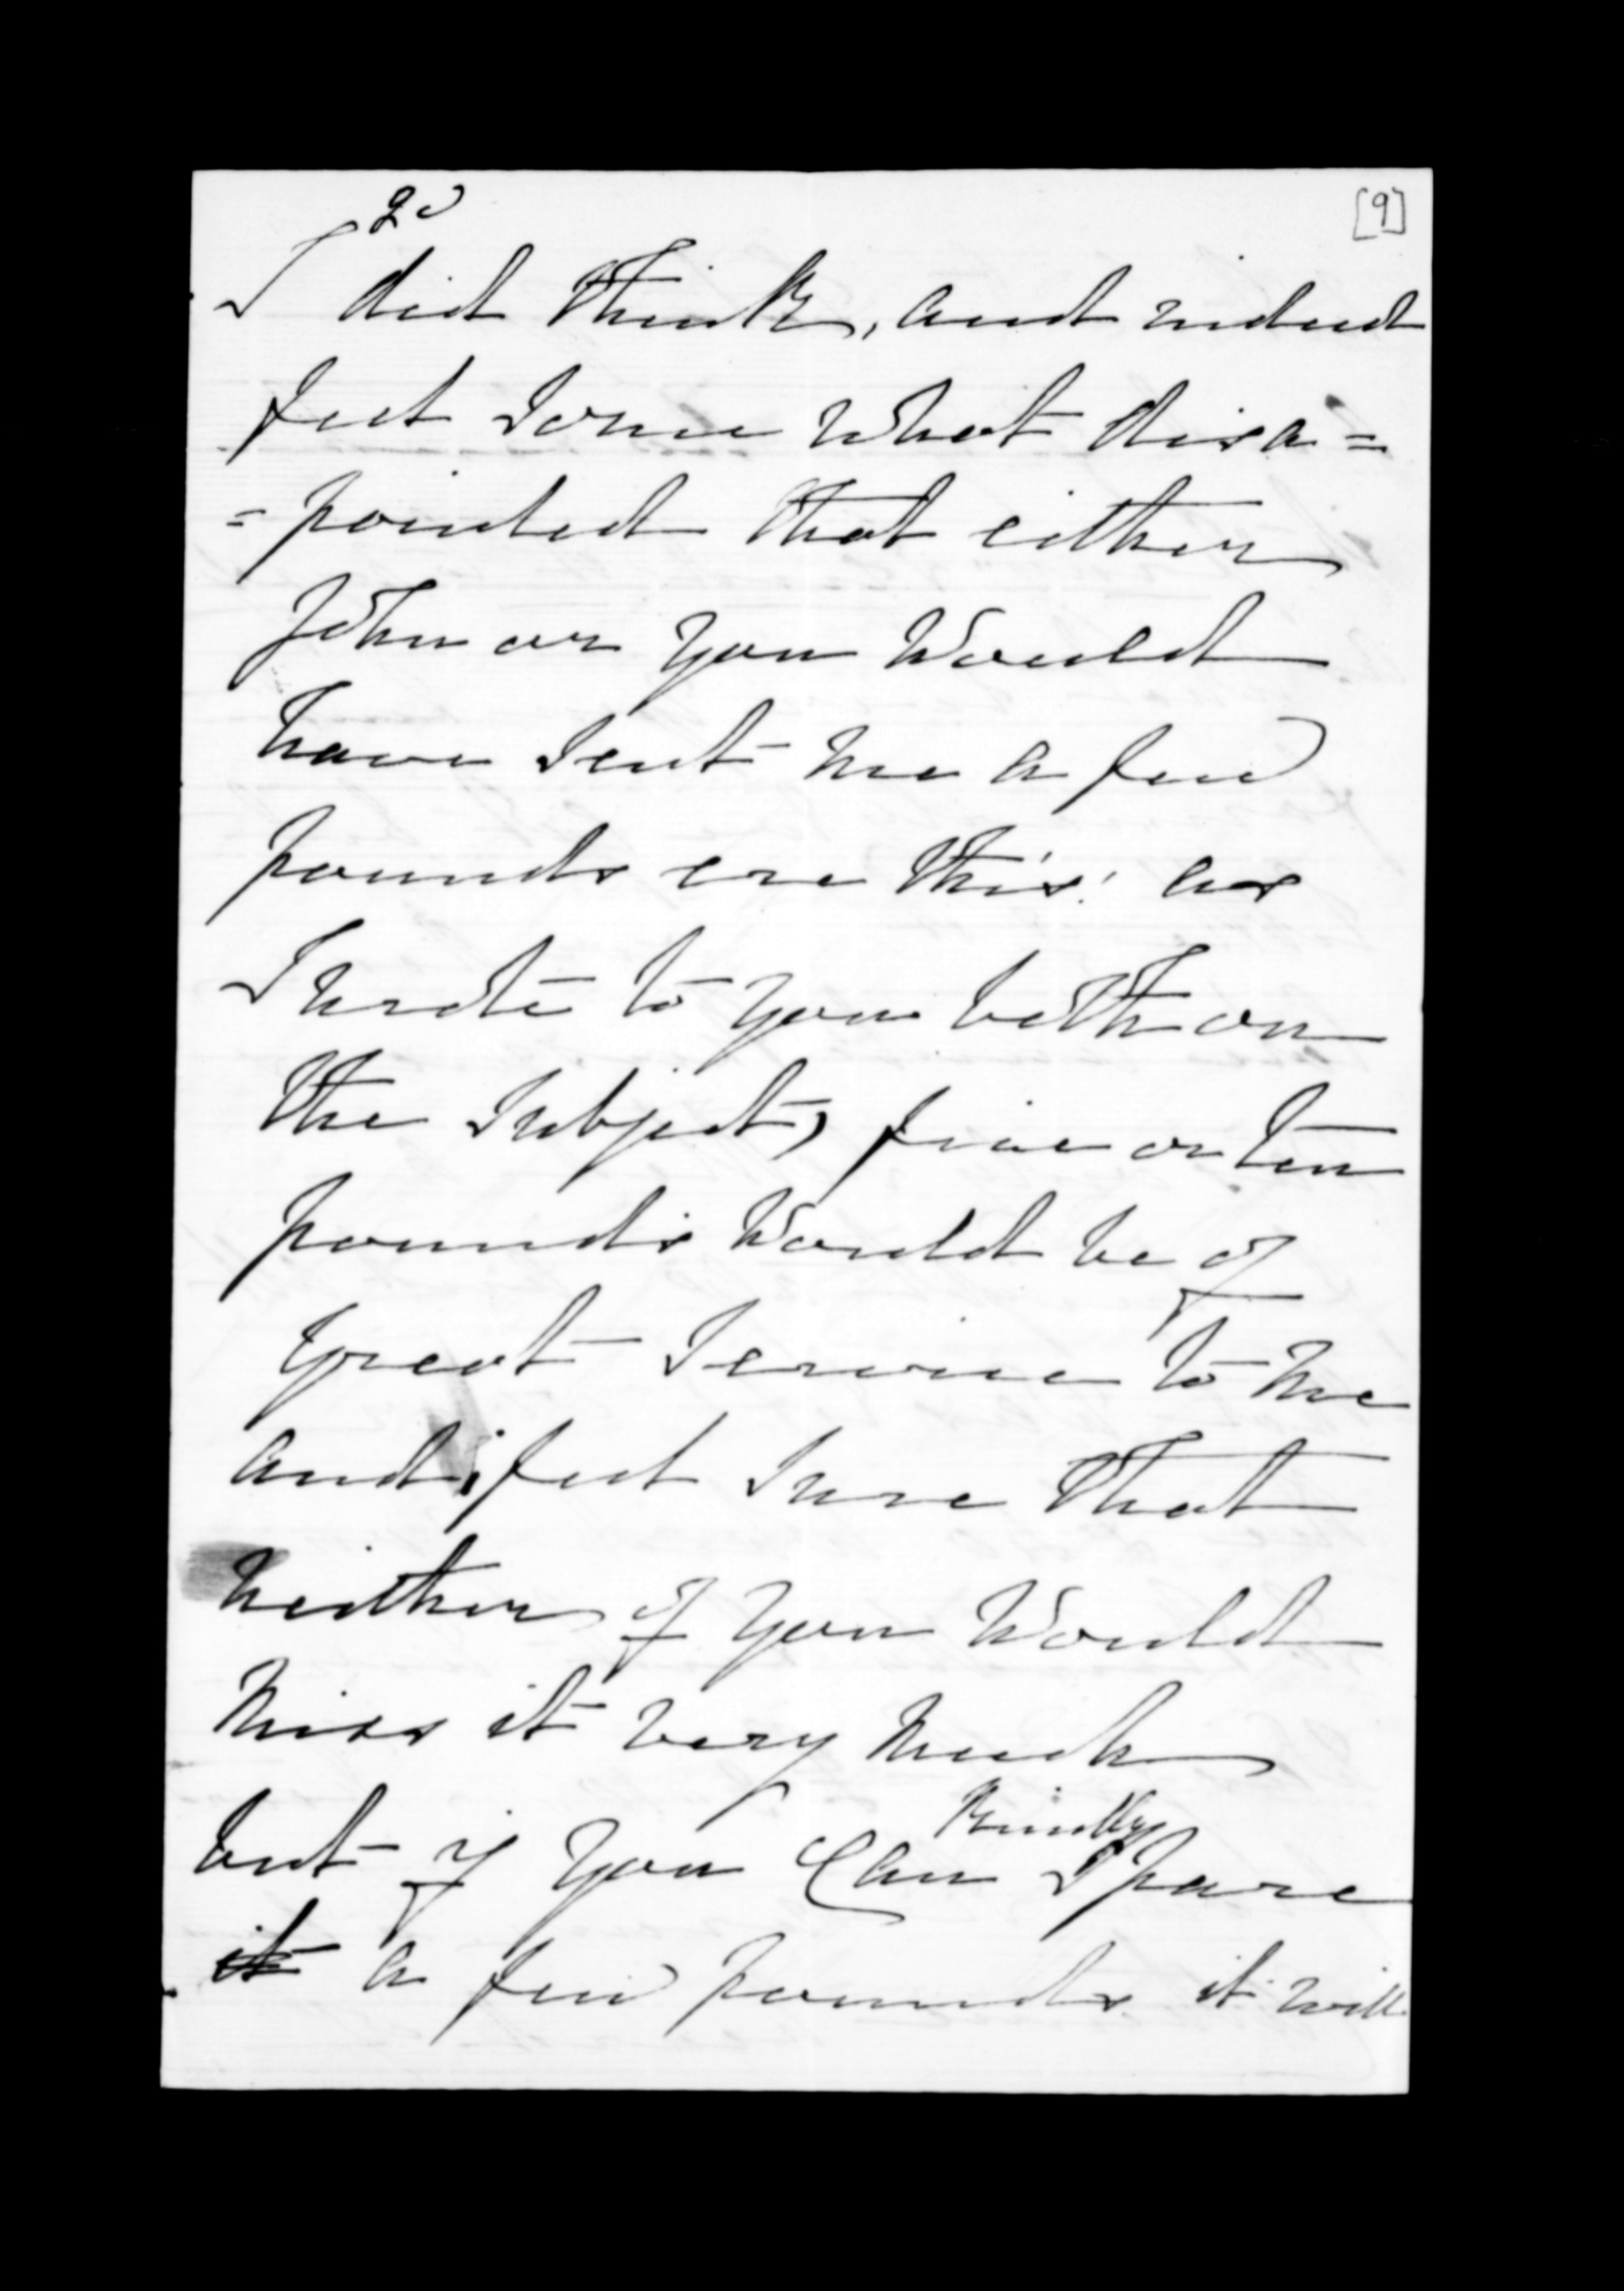 2d
[9]
I did think, and indeed
feel Some what disa=
=pointed that either
John or you Would
have Sent me a few
pounds ere this! as
I wrote to you both on
the Subject, five or ten
pounds Would be of
great Service to me
and i feel Sure that
neither of you Would
miss it very much
Kindly
but if you Can Spare
it a few pounds it will